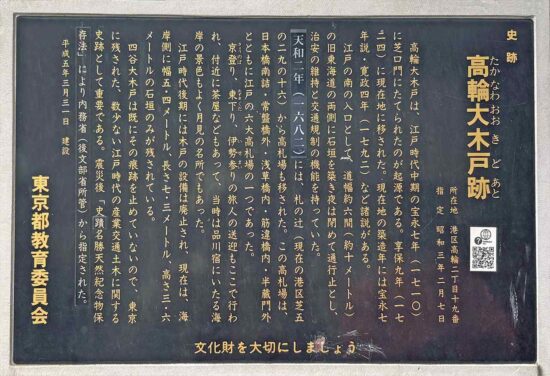 史跡
高輪大木戸跡
たかなわおおきどあと
所在地 港区高輪二丁目十九番
指定 昭和三年二月七日
高輪大木戸は、江戸時代中期の宝永七年（一七一〇）
に芝口門にたてられたのが起源である。享保九年（一七
二四）に現在地に移された。現在地の築造年には宝永七
年説・寛政四年（一七九二）など諸説がある。
江戸の南の入口として、道幅約六間（約十メートル）
の旧東海道の両側に石垣を築き夜は閉めて通行止とし、
治安の維持と交通規制の機能を持っていた。
天和二年（一六八二）には、札の辻（現在の港区芝五
の二九の十六）から高札場も移された。この高札場は、
日本橋南詰・常盤橋外・浅草橋内・筋違橋内・半蔵門外
とともに江戸の六大高札場の一つであった。
京登り、東下り、伊勢参りの旅人の送迎もここで行わ
れ、付近に茶屋などもあって、当時は品川宿にいたる海
岸の景色もよく月見の名所でもあった。
江戸時代後期には木戸の設備は廃止され、現在は、海
岸側に幅五・四メートル、長さ七・三メートル、高さ三・六
メートルの石垣のみが残されている。
四谷大木戸は既にその痕跡を止めていないので、東京
に残された、数少ない江戸時代の産業交通土木に関する
史跡として重要である。震災後「史蹟名勝天然紀念物保
存法」により内務省（後文部省所管）から指定された。
平成五年三月三一日 建設
東京都教育委員会
文化財を大切にしましょう